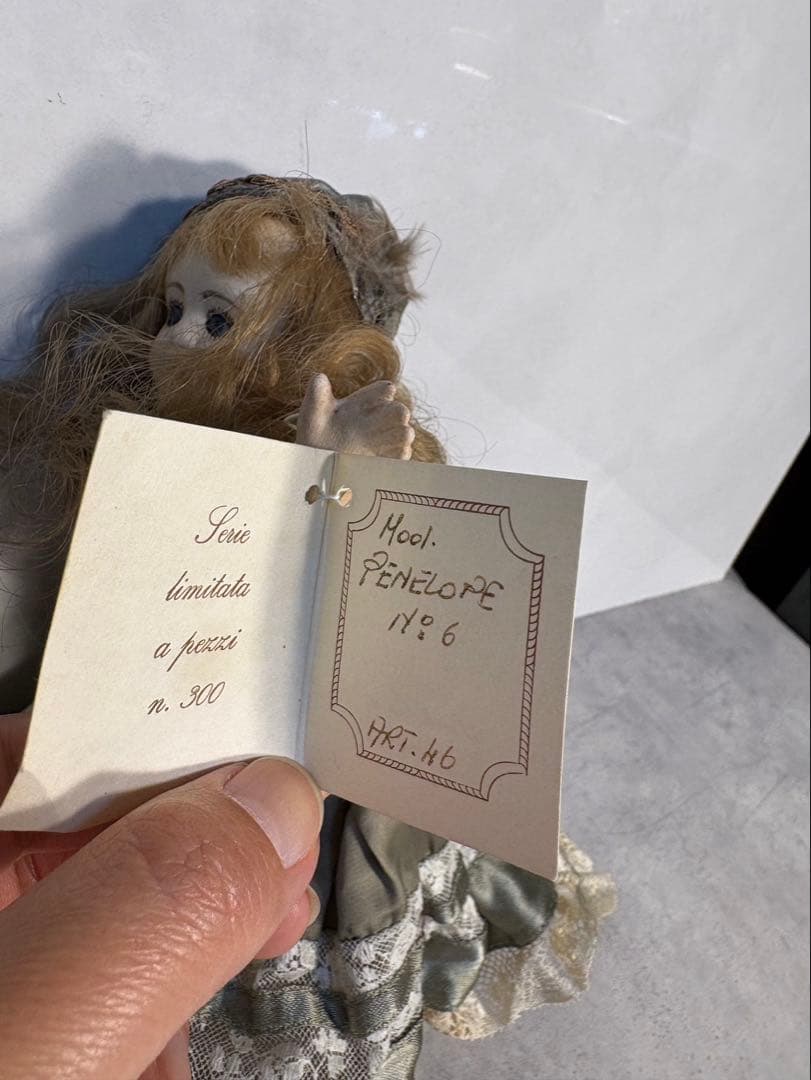 Serie
limitata
a pezzi
n. 300
Mod.
PENELOPE
Nº 6
ART. 46